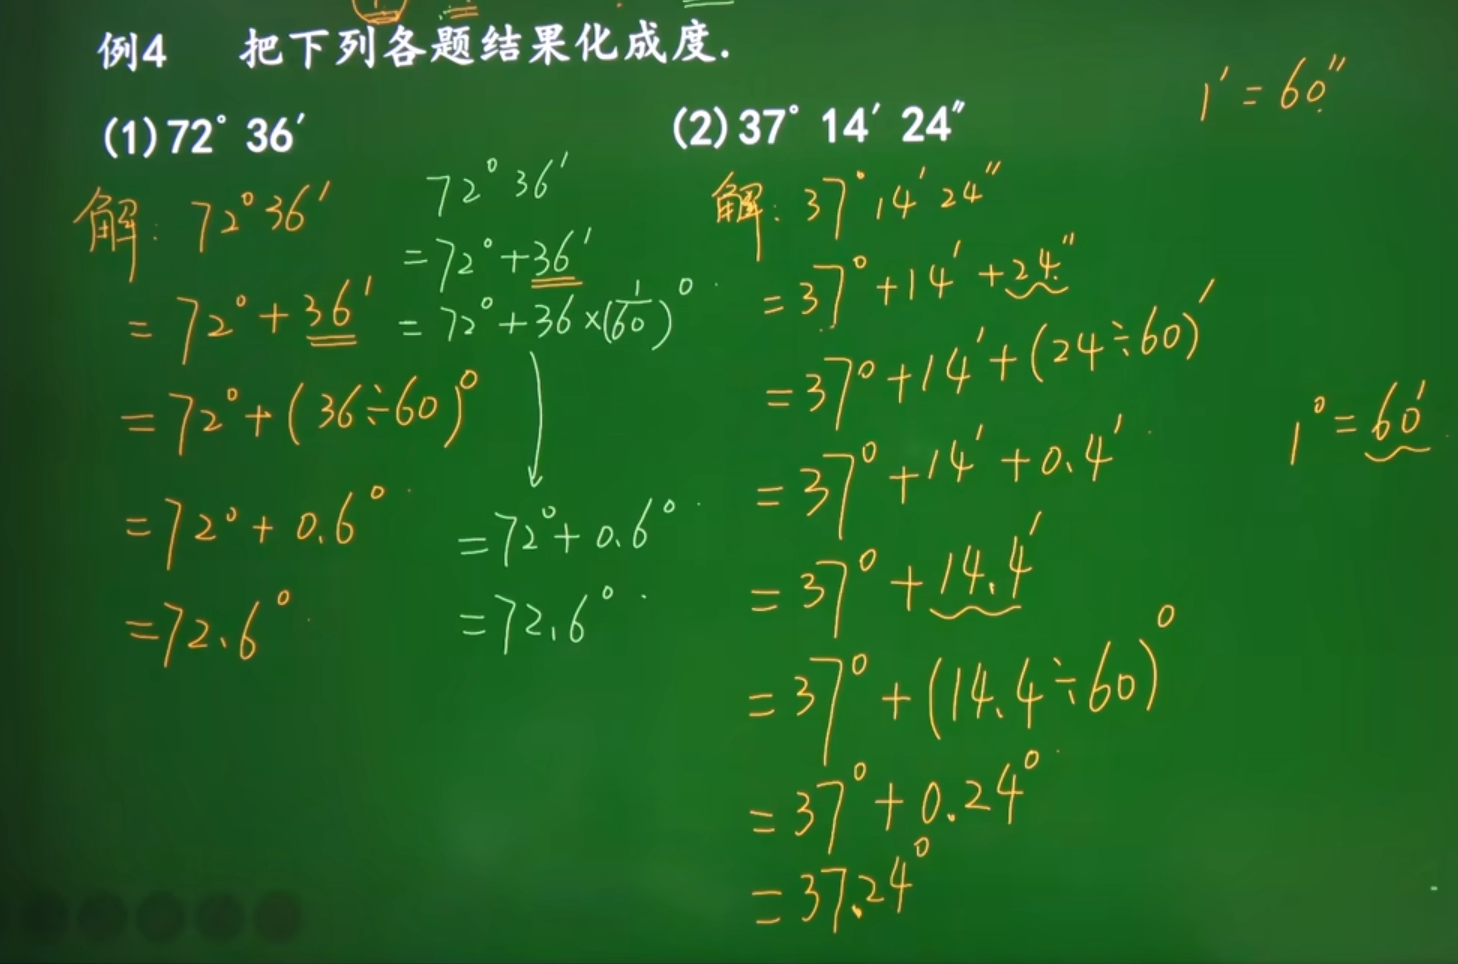 例4 把下列各题结果化成度.
(1)72°36′
解: 72°36′
=72°+36′
=72°+(36÷60)°
=72°+0.6°
=72.6°
72°36′
=72°+36′
=72°+36×(1/60)°
=72°+0.6°
=72.6°
(2)37°14′24″
解: 37°14′24″
=37°+14′+24″
=37°+14′+(24÷60)′
=37°+14′+0.4′
=37°+14.4′
=37°+(14.4÷60)°
=37°+0.24°
=37.24°
1′=60″
1°=60′